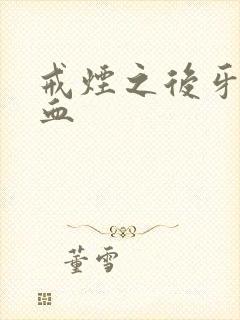 戒煙之後牙
血
董雪